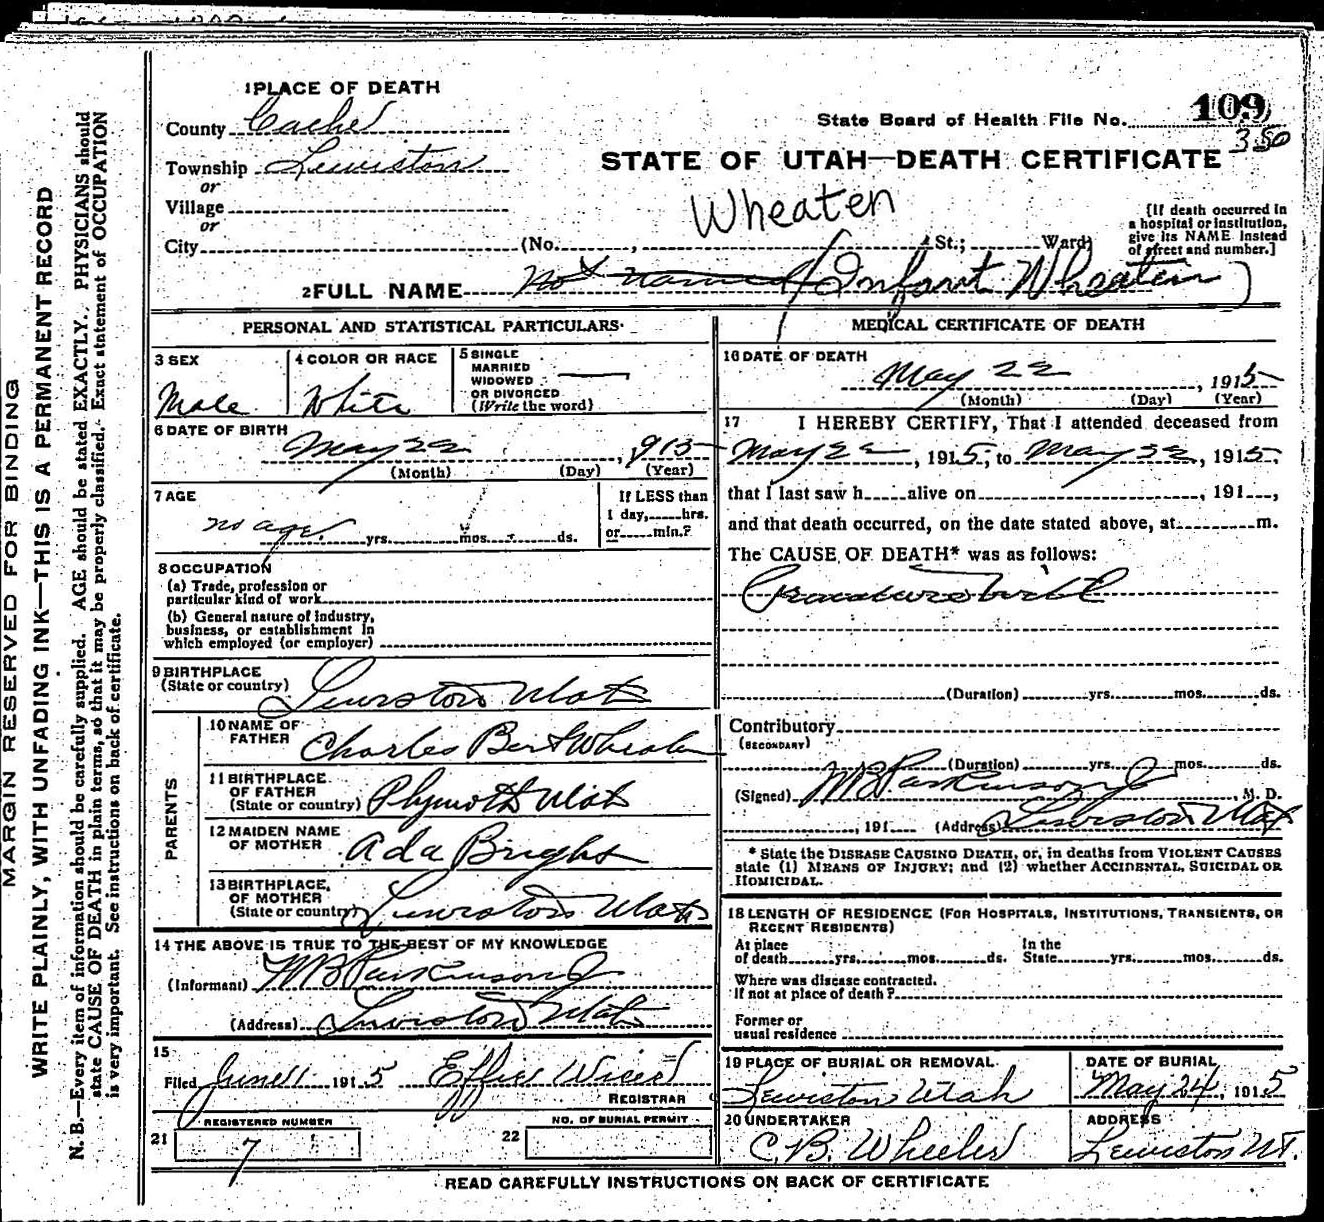 1 PLACE OF DEATH
County Cache
Township Lewiston
or
Village
or
City (No. , St.; Ward)
State Board of Health File No. 109
350
STATE OF UTAH—DEATH CERTIFICATE
Wheaten
[If death occurred in
a hospital or institution,
give its NAME instead
of street and number.]
2 FULL NAME Not named (Infant Wheaten)
PERSONAL AND STATISTICAL PARTICULARS
3 SEX
Male
4 COLOR OR RACE
White
5 SINGLE
MARRIED
WIDOWED
OR DIVORCED
(Write the word)
6 DATE OF BIRTH
May 22, 1915
(Month) (Day) (Year)
7 AGE
no age yrs. mos. ds.
If LESS than
1 day, hrs.
or min.?
8 OCCUPATION
(a) Trade, profession or
particular kind of work
(b) General nature of industry,
business, or establishment in
which employed (or employer)
9 BIRTHPLACE
(State or country) Lewiston Utah
PARENTS
10 NAME OF
FATHER Charles Bert Wheaten
11 BIRTHPLACE
OF FATHER
(State or country) Plymoth Utah
12 MAIDEN NAME
OF MOTHER Ada Bright
13 BIRTHPLACE,
OF MOTHER
(State or country) Lewiston Utah
14 THE ABOVE IS TRUE TO THE BEST OF MY KNOWLEDGE
(Informant) W B Parkinson Jr
(Address) Lewiston Utah
15
Filed June 11 1915 Effie Wiser
REGISTRAR
REGISTERED NUMBER
21 7
NO. OF BURIAL PERMIT
22
MEDICAL CERTIFICATE OF DEATH
16 DATE OF DEATH
May 22, 1915
(Month) (Day) (Year)
17 I HEREBY CERTIFY, That I attended deceased from
May 22, 1915, to May 22, 1915,
that I last saw h alive on , 191 ,
and that death occurred, on the date stated above, at m.
The CAUSE OF DEATH* was as follows:
(Duration) yrs. mos. ds.
Contributory
(SECONDARY)
(Duration) yrs. mos. ds.
(Signed) W B Parkinson Jr, M. D.
, 191 (Address) Lewiston Utah
* State the DISEASE CAUSING DEATH, or, in deaths from VIOLENT CAUSES
state (1) MEANS OF INJURY; and (2) whether ACCIDENTAL, SUICIDAL OR
HOMICIDAL.
18 LENGTH OF RESIDENCE (FOR HOSPITALS, INSTITUTIONS, TRANSIENTS, OR
RECENT RESIDENTS)
At place
of death yrs. mos. ds.
In the
State yrs. mos. ds.
Where was disease contracted.
If not at place of death?
Former or
usual residence
19 PLACE OF BURIAL OR REMOVAL
Lewiston Utah
DATE OF BURIAL
May 24, 1915
20 UNDERTAKER
C. B. Wheeler
ADDRESS
Lewiston Ut.
READ CAREFULLY INSTRUCTIONS ON BACK OF CERTIFICATE
MARGIN RESERVED FOR BINDING
WRITE PLAINLY, WITH UNFADING INK—THIS IS A PERMANENT RECORD
N. B.—Every item of information should be carefully supplied. AGE should be stated EXACTLY. PHYSICIANS should
state CAUSE OF DEATH in plain terms, so that it may be properly classified. Exact statement of OCCUPATION
is very important. See instructions on back of certificate.